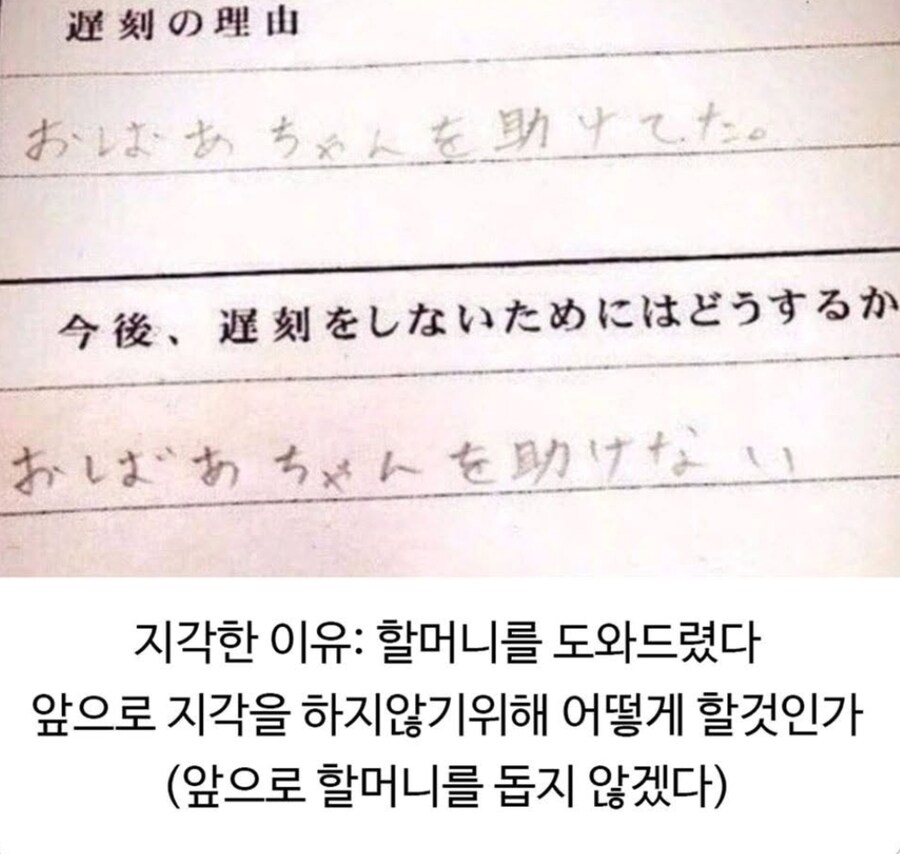 遅刻の理由
おばあちゃんを助けてた。
今後、遅刻をしないためにはどうするか
おばあちゃんを助けない
지각한 이유: 할머니를 도와드렸다
앞으로 지각을 하지않기위해 어떻게 할것인가
(앞으로 할머니를 돕지 않겠다)